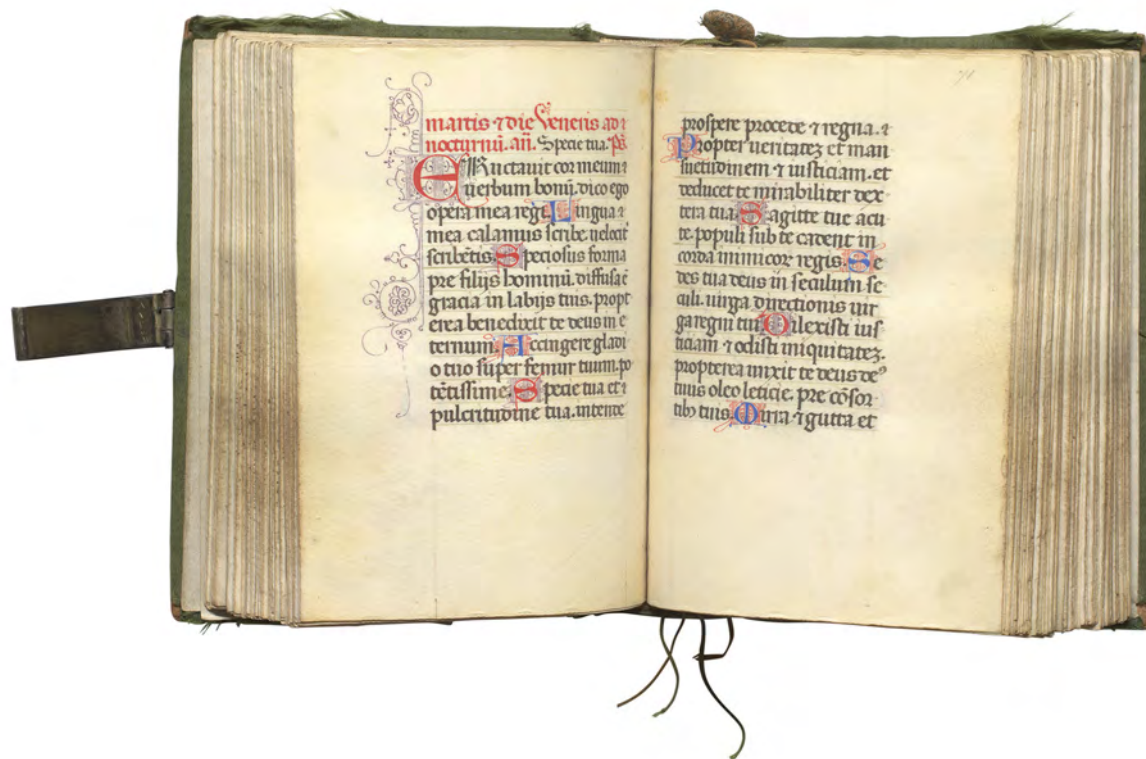 martis ⁊ die Veneris ad ⁊
nocturnū. an̄. Specie tua. p̄s
ERuctauit cor meum ⁊
uerbum bonū. dico ego
opera mea regi. Lingua ⁊
mea calamus scribe. uelocit̾
scribētis. Speciosus forma
pre filijs hominū. diffusa ē
gracia in labijs tuis. propt
erea benedixit te deus in e
ternum. Accingere gladi
o tuo super femur tuum. po
tētissime. Specie tua et ⁊
pulcritudine tua. intende
prospere procede ⁊ regna. ⁊
Propter ueritatez et man
suetudinem ⁊ iusticiam. et
deducet te mirabiliter dex
tera tua. Sagitte tue acu
te. populi sub te cadent in
corda inimicor regis. Se
des tua deus in seculum se
culi. uirga directionis uir
ga regni tui. Dilexisti ius
ticiam ⁊ odisti iniquitatez.
propterea unxit te deus de⁹
tuus oleo leticie. pre cōsor
tibꝫ tuis. Mirra ⁊ gutta et